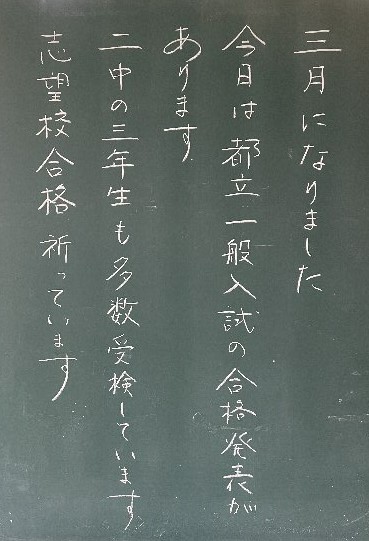 三月になりました
今日は都立一般入試の合格発表が
あります
二中の三年生も多数受検しています
志望校合格祈っています